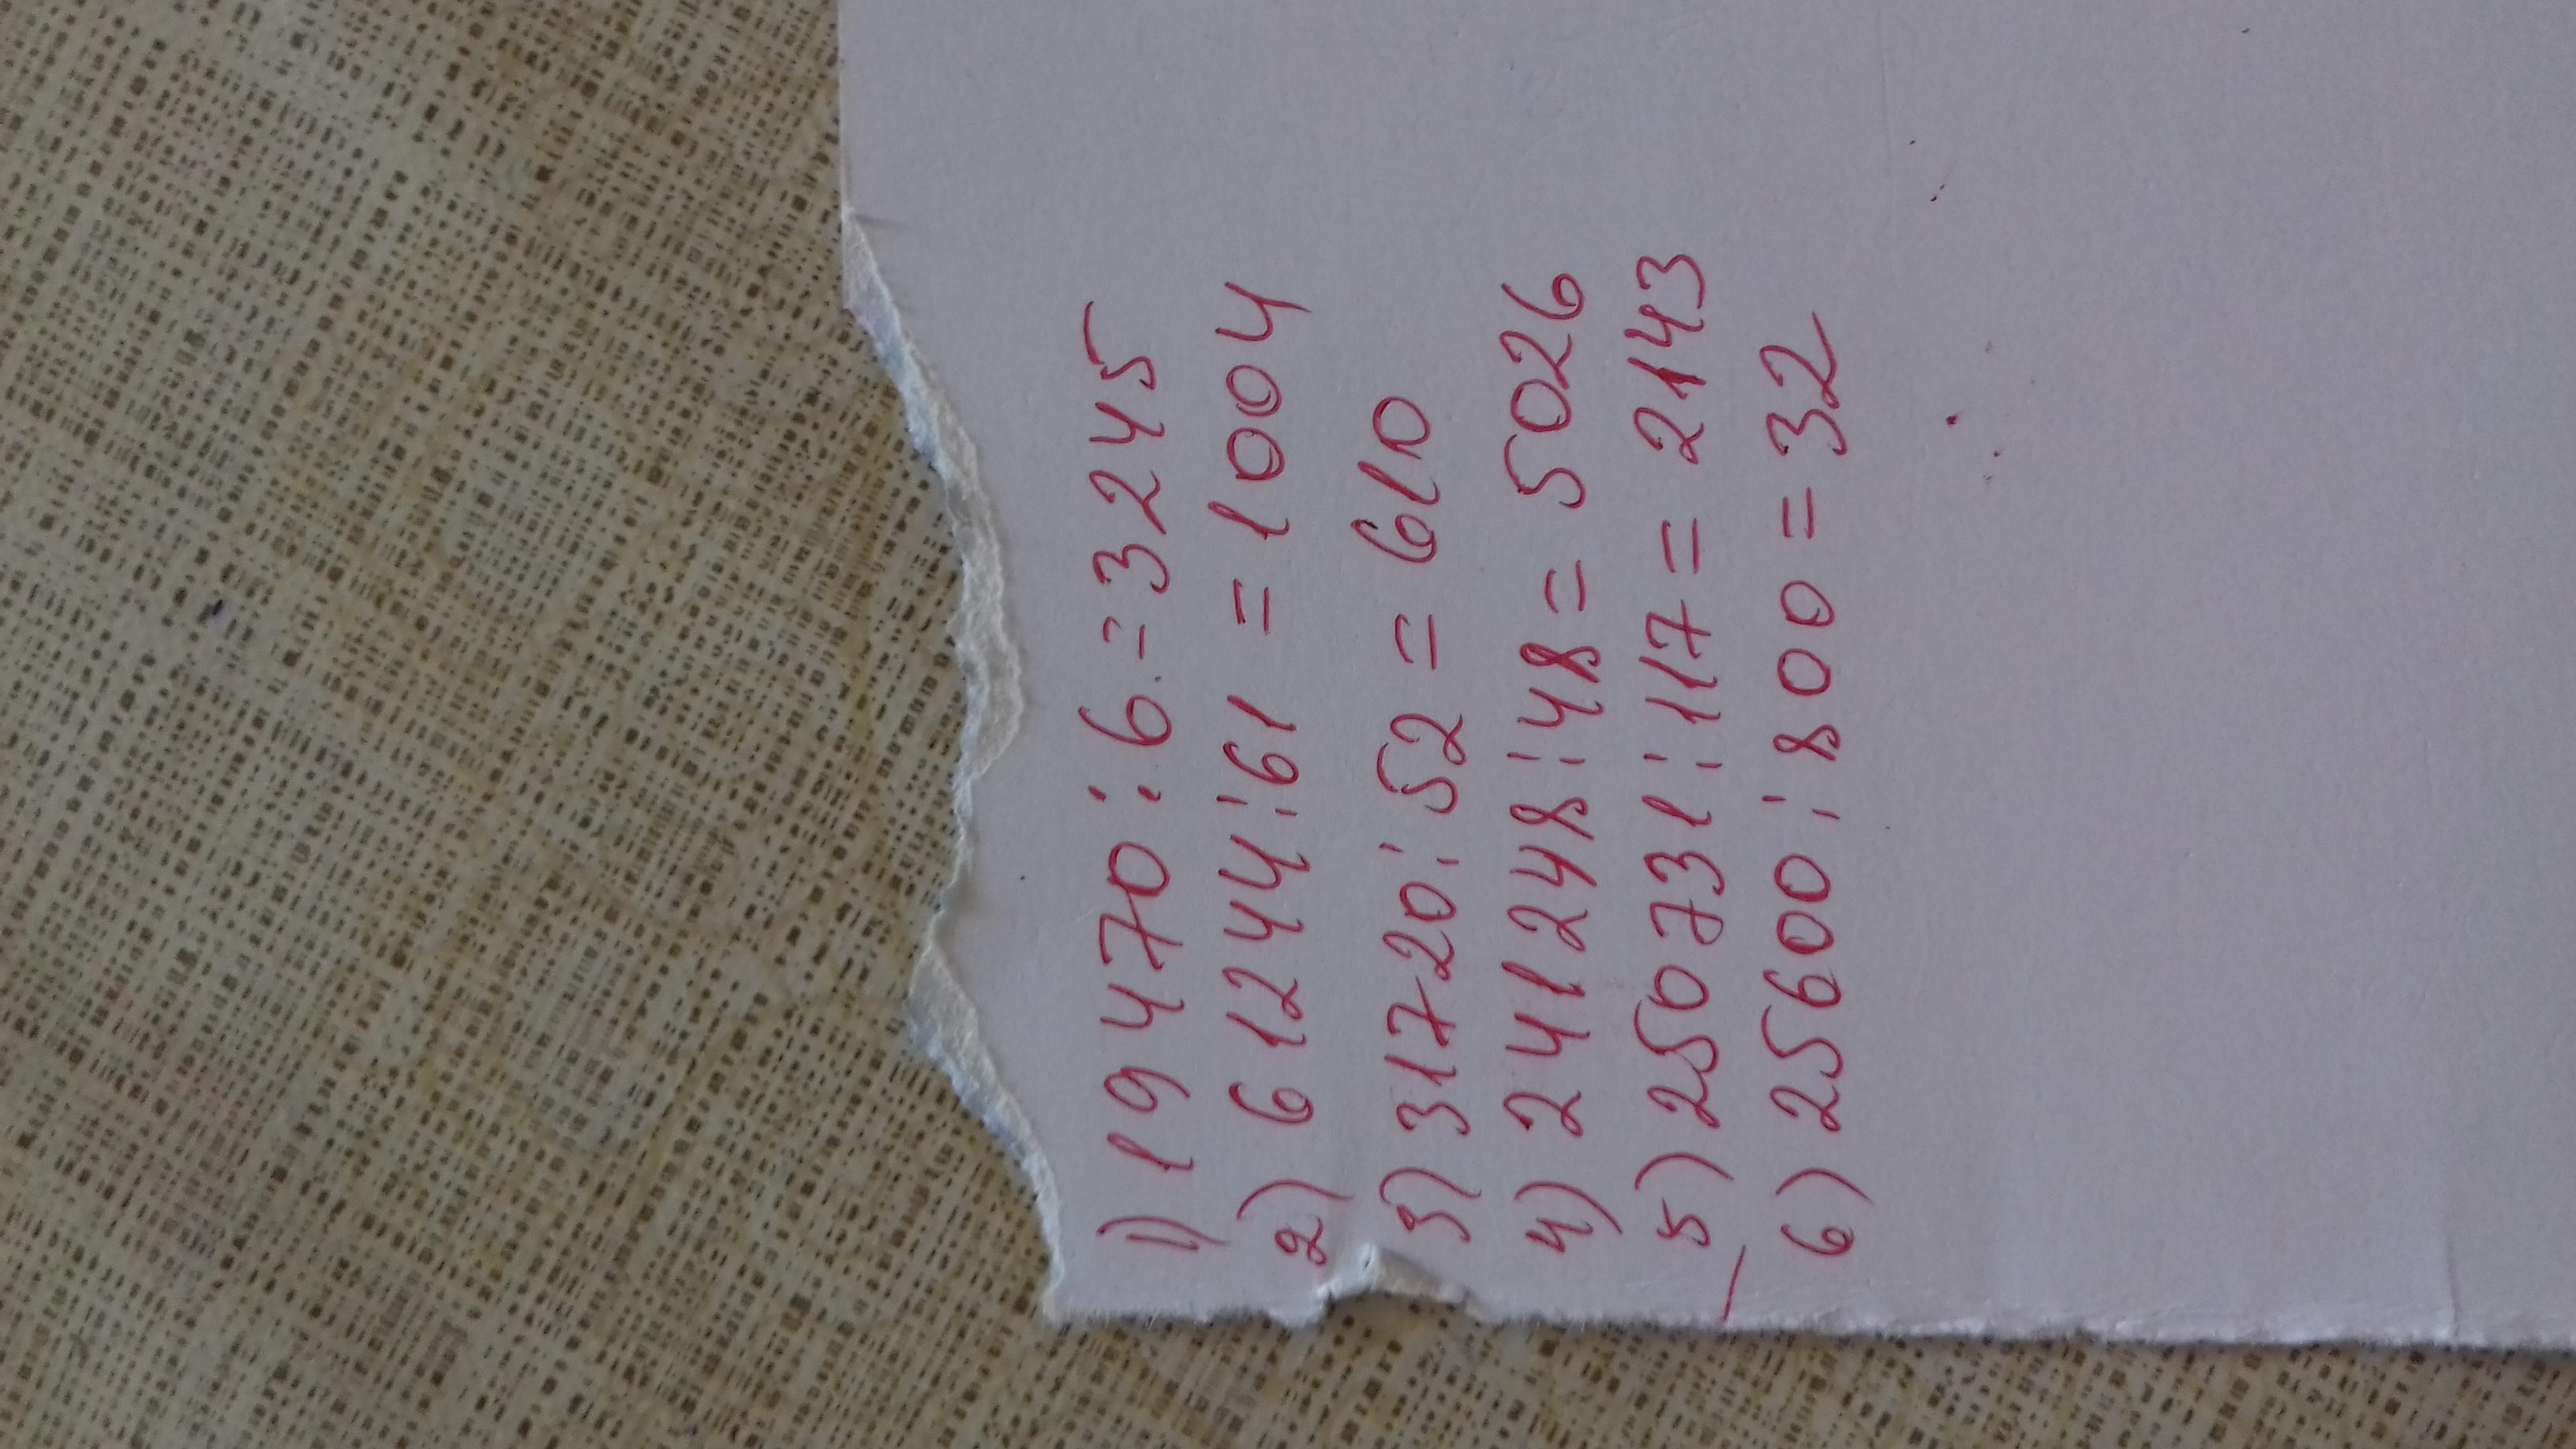 1) 19470 : 6 = 3245
2) 61244 : 61 = 1004
3) 31720 : 52 = 610
4) 241248 : 48 = 5026
5) 250731 : 117 = 2143
6) 25600 : 800 = 32